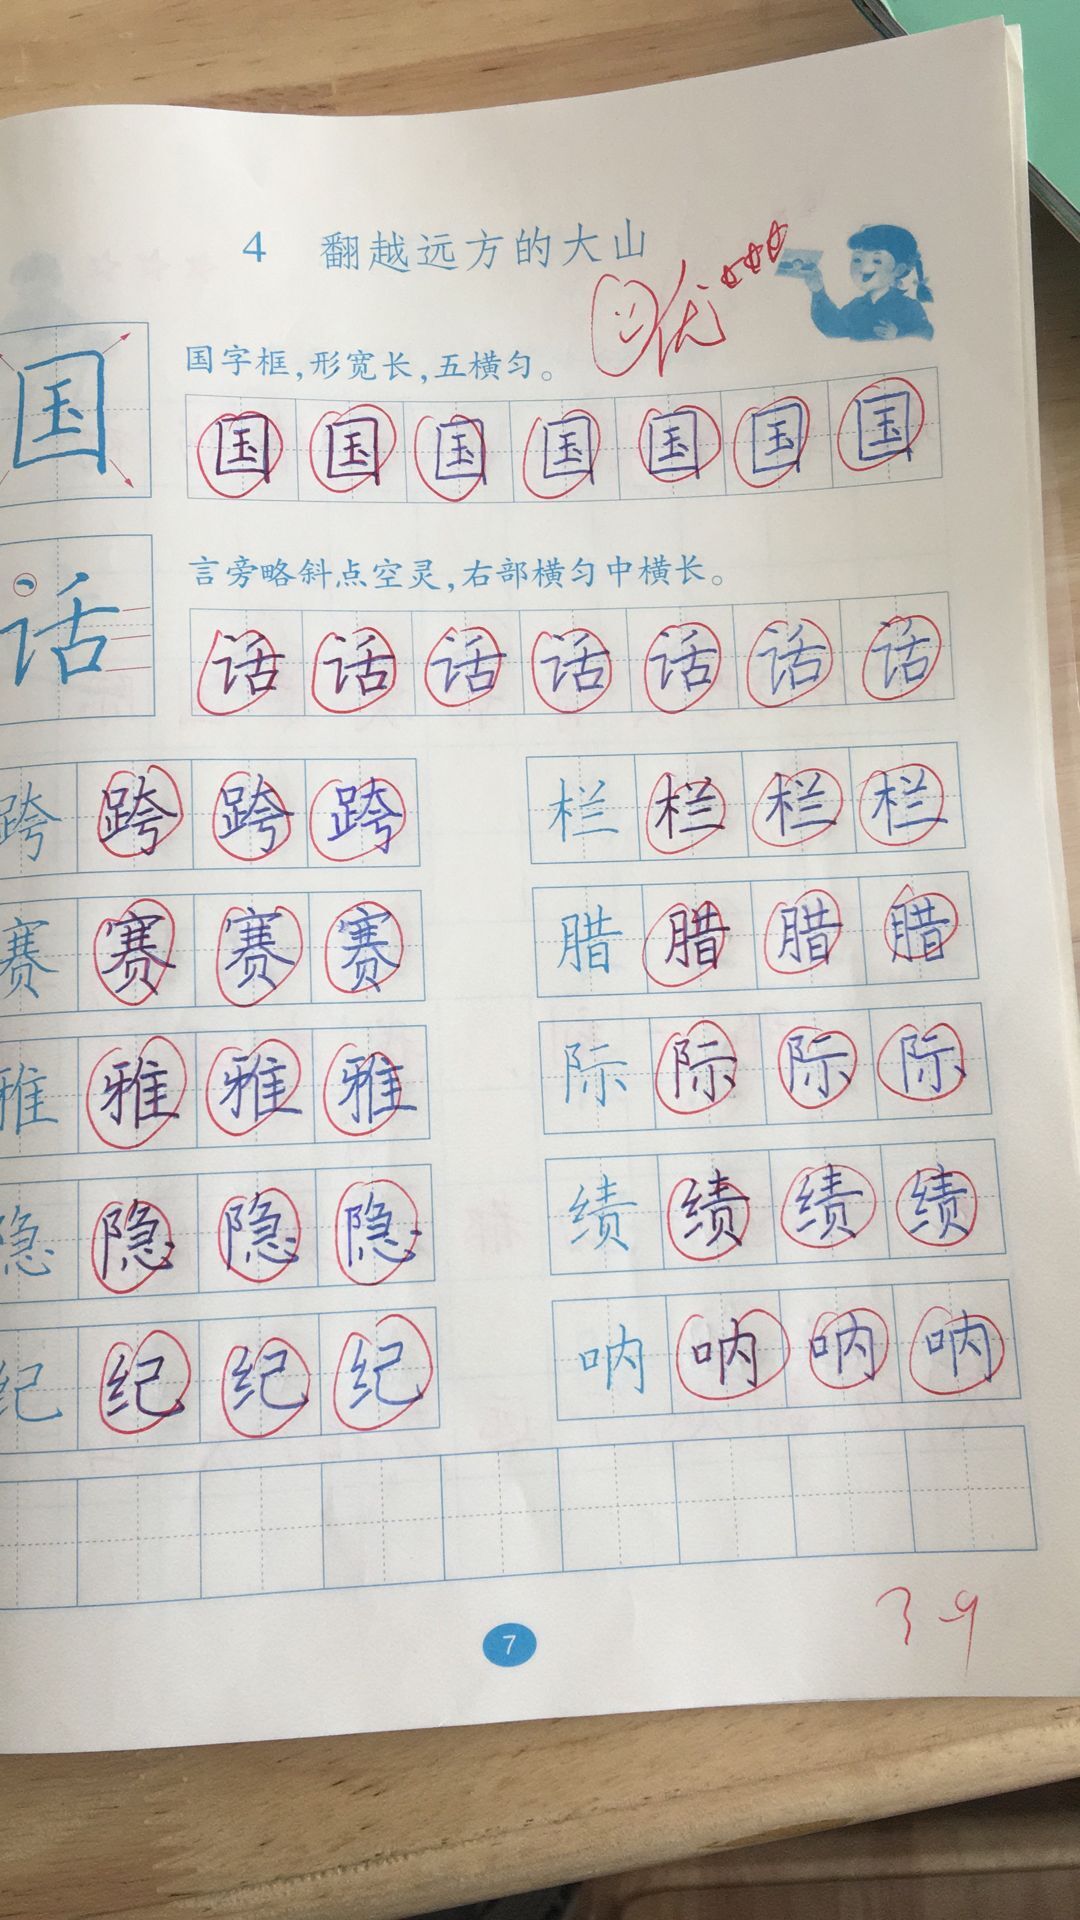 4 翻越远方的大山
优
国字框,形宽长,五横匀。
国 国 国 国 国 国 国 国
言旁略斜点空灵,右部横匀中横长。
话 话 话 话 话 话 话 话
跨 跨 跨 跨 栏 栏 栏 栏
赛 赛 赛 赛 腊 腊 腊 腊
雅 雅 雅 雅 际 际 际 际
隐 隐 隐 隐 绩 绩 绩 绩
纪 纪 纪 纪 呐 呐 呐 呐
3-9
7